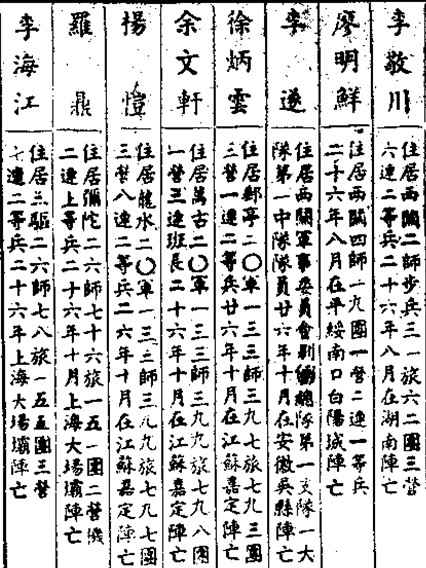 李敬川
住居西關二師步兵三一旅六二團三營
六連二等兵二十六年八月在湖南陣亡
廖明鮮
住居西關四師一九團一營二連一等兵
二十六年八月在平綏南口白陽城陣亡
李遂
住居西關軍事委員會別働總隊第一支隊一大
隊第一中隊隊員廿六年十月在安徽吳縣陣亡
徐炳雲
住居郵亭二〇軍一三三師三九七旅七九三團
三營一連二等兵廿六年十月在江蘇嘉定陣亡
余文軒
住居萬古二〇軍一三三師三九九旅七九八團
一營三連班長二十六年十月在江蘇嘉定陣亡
楊愷
住居龍水二〇軍一三三師三九九旅七九七團
三營八連二等兵二六年十月在江蘇嘉定陣亡
羅鼎
住居彌陀二六師七十六旅一五一團二營機
二連上等兵二十六年十月上海大場壩陣亡
李海江
住居三驅二六師七八旅一五五團三營
七連二等兵二十六年上海大場壩陣亡